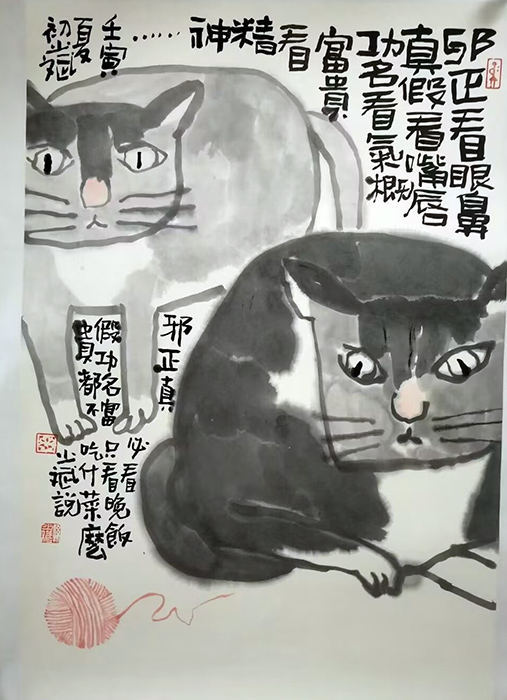 邪正看眼鼻
真假看嘴唇
功名看氣概
富貴
看精神……
壬寅
夏
初
邪正真
假功名富
貴都不
必看
只看晚飯
吃什菜麼
斌說